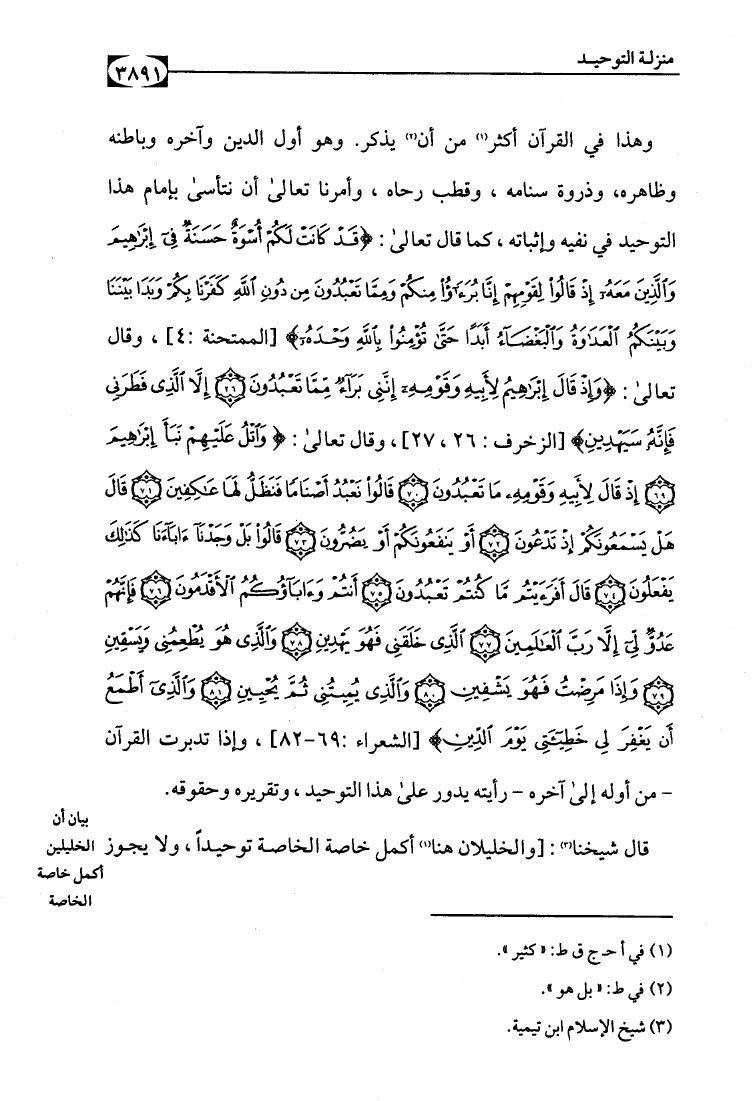 منزلة التوحيد
٣٨٩١
وهذا في القرآن أكثر(١) من أن(٢) يذكر. وهو أول الدين وآخره وباطنه
وظاهره، وذروة سنامه ، وقطب رحاه ، وأمرنا تعالىٰ أن نتأسىٰ بإمام هذا
التوحيد في نفيه وإثباته ، كما قال تعالىٰ : ﴿قَدْ كَانَتْ لَكُمْ أُسْوَةٌ حَسَنَةٌ فِىٓ إِبْرَٰهِيمَ
وَٱلَّذِينَ مَعَهُۥٓ إِذْ قَالُوا۟ لِقَوْمِهِمْ إِنَّا بُرَءَٰٓؤُا۟ مِنكُمْ وَمِمَّا تَعْبُدُونَ مِن دُونِ ٱللَّهِ كَفَرْنَا بِكُمْ وَبَدَا بَيْنَنَا
وَبَيْنَكُمُ ٱلْعَدَٰوَةُ وَٱلْبَغْضَآءُ أَبَدًا حَتَّىٰ تُؤْمِنُوا۟ بِٱللَّهِ وَحْدَهُۥٓ﴾ [الممتحنة :٤] ، وقال
تعالىٰ : ﴿وَإِذْ قَالَ إِبْرَٰهِيمُ لِأَبِيهِ وَقَوْمِهِۦٓ إِنَّنِى بَرَآءٌ مِّمَّا تَعْبُدُونَ ٢٦ إِلَّا ٱلَّذِى فَطَرَنِى
فَإِنَّهُۥ سَيَهْدِينِ﴾ [الزخرف : ٢٦ ، ٢٧] ، وقال تعالىٰ : ﴿ وَٱتْلُ عَلَيْهِمْ نَبَأَ إِبْرَٰهِيمَ
٦٩ إِذْ قَالَ لِأَبِيهِ وَقَوْمِهِۦ مَا تَعْبُدُونَ ٧٠ قَالُوا۟ نَعْبُدُ أَصْنَامًا فَنَظَلُّ لَهَا عَٰكِفِينَ ٧١ قَالَ
هَلْ يَسْمَعُونَكُمْ إِذْ تَدْعُونَ ٧٢ أَوْ يَنفَعُونَكُمْ أَوْ يَضُرُّونَ ٧٣ قَالُوا۟ بَلْ وَجَدْنَآ ءَابَآءَنَا كَذَٰلِكَ
يَفْعَلُونَ ٧٤ قَالَ أَفَرَءَيْتُم مَّا كُنتُمْ تَعْبُدُونَ ٧٥ أَنتُمْ وَءَابَآؤُكُمُ ٱلْأَقْدَمُونَ ٧٦ فَإِنَّهُمْ
عَدُوٌّ لِّىٓ إِلَّا رَبَّ ٱلْعَٰلَمِينَ ٧٧ ٱلَّذِى خَلَقَنِى فَهُوَ يَهْدِينِ ٧٨ وَٱلَّذِى هُوَ يُطْعِمُنِى وَيَسْقِينِ
٧٩ وَإِذَا مَرِضْتُ فَهُوَ يَشْفِينِ ٨٠ وَٱلَّذِى يُمِيتُنِى ثُمَّ يُحْيِينِ ٨١ وَٱلَّذِىٓ أَطْمَعُ
أَن يَغْفِرَ لِى خَطِيٓـَٔتِى يَوْمَ ٱلدِّينِ﴾ [الشعراء :٦٩-٨٢] ، وإذا تدبرت القرآن
- من أوله إلىٰ آخره - رأيته يدور علىٰ هذا التوحيد ، وتقريره وحقوقه.
قال شيخنا(٣) : [والخليلان هنا(١) أكمل خاصة الخاصة توحيداً ، ولا يجوز
بيان أن
الخليلين
أكمل خاصة
الخاصة
(١) في أ ح ج ق ط: «كثير».
(٢) في ط: «بل هو».
(٣) شيخ الإسلام ابن تيمية.